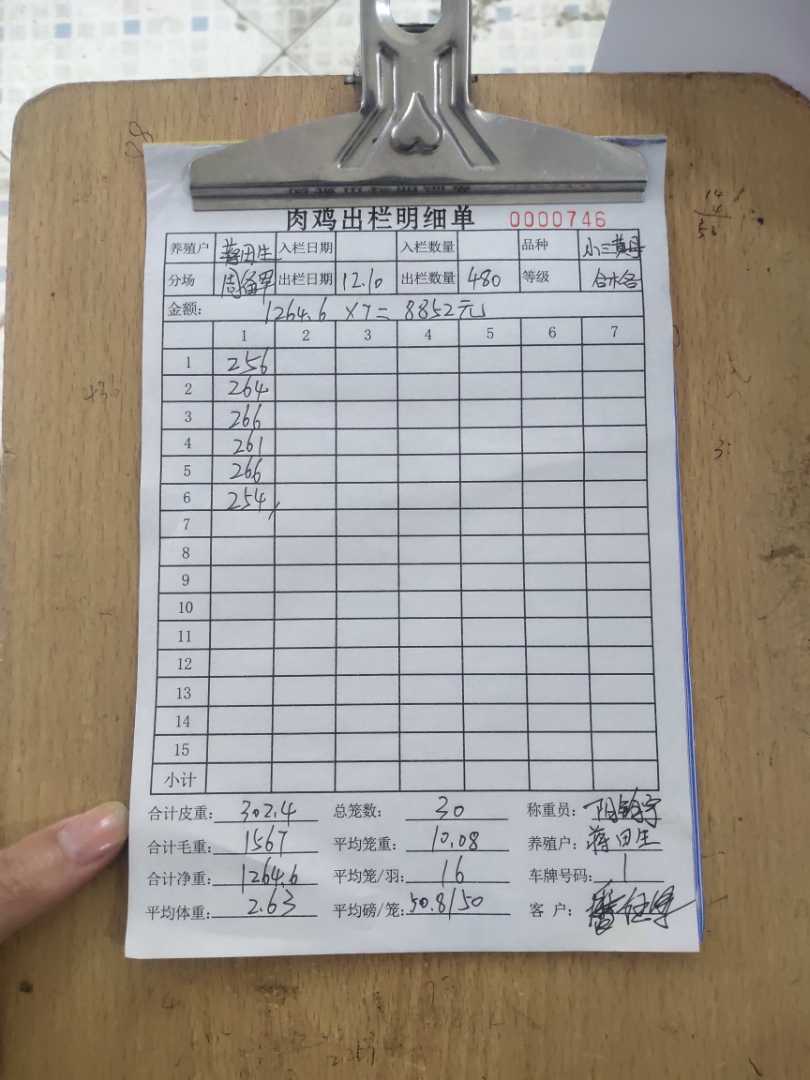 肉鸡出栏明细单 0000746
养殖户 蒋田生 入栏日期 入栏数量 品种 小三黄母
分场 出栏日期 12.10 出栏数量 480 等级
金额: 1264.6 ×7= 8852元
1 2 3 4 5 6 7
1 256
2 264
3 266
4 261
5 266
6 254
7
8
9
10
11
12
13
14
15
小计
合计皮重: 302.4 总笼数: 30 称重员:
合计毛重: 1567 平均笼重: 10.08 养殖户: 蒋田生
合计净重: 1264.6 平均笼/羽: 16 车牌号码: 1
平均体重: 2.63 平均磅/笼: 50.8/50 客 户: